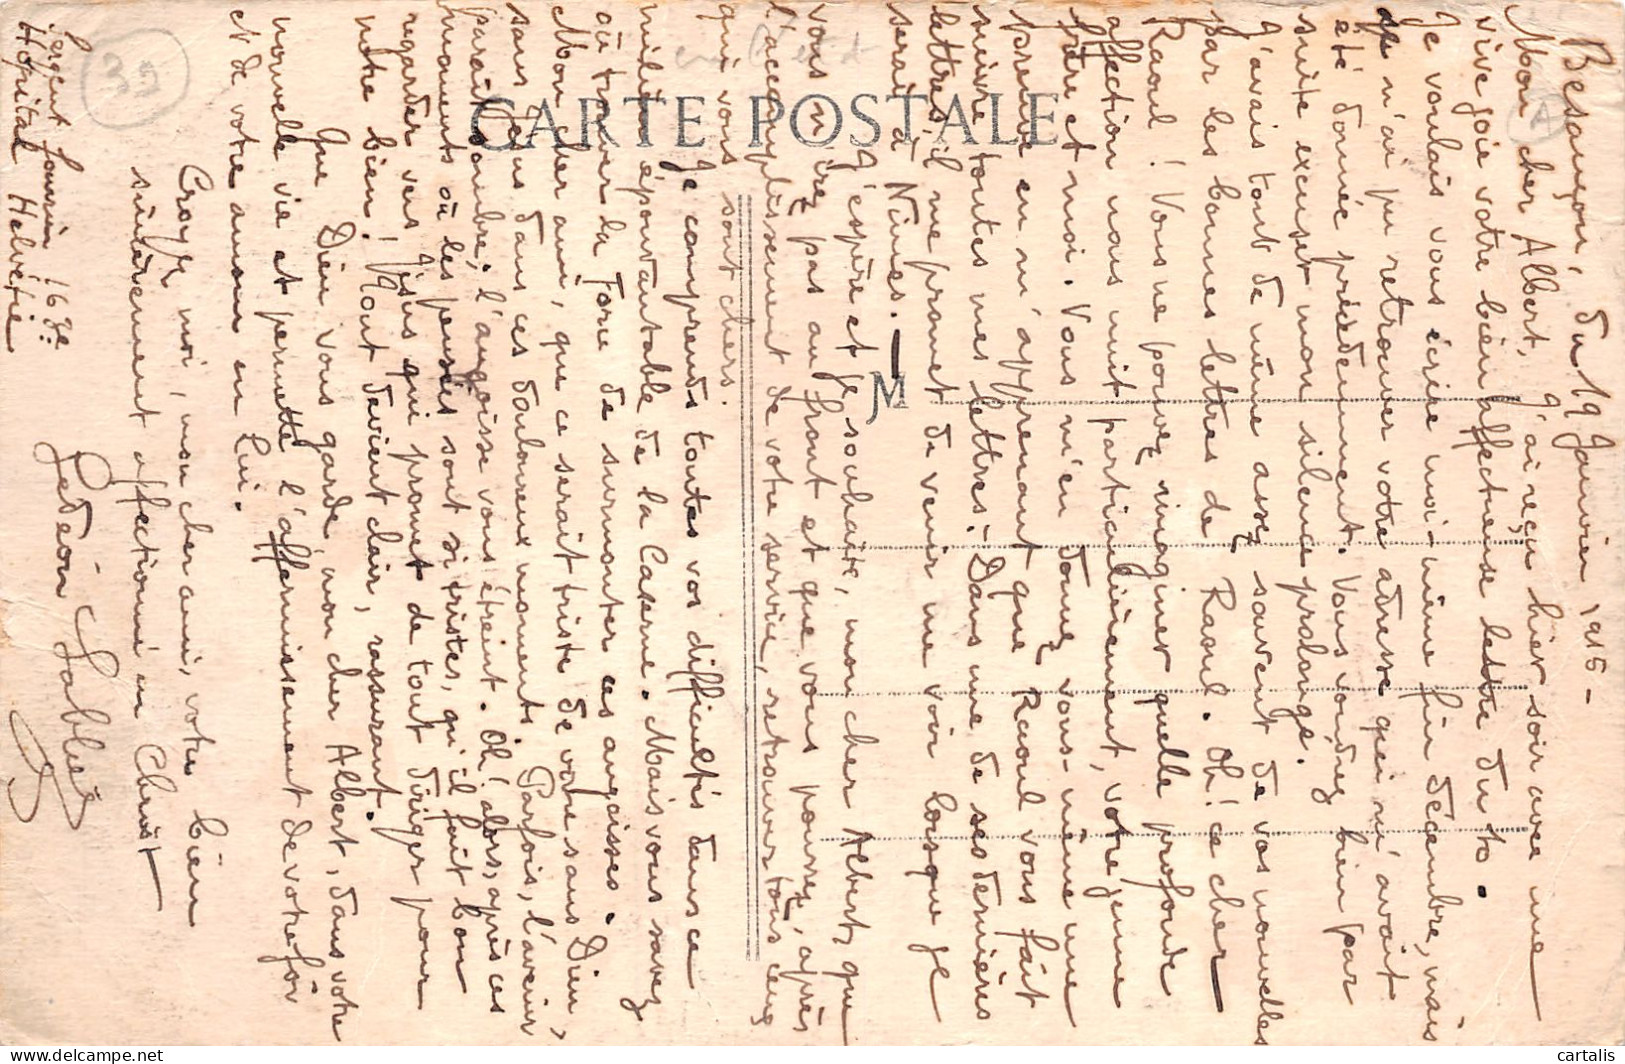 Besançon, du 19 Janvier 1915 -
Mon cher Albert, J'ai reçu hier soir avec une
vive joie votre bien affectueuse lettre du 10.
Je voulais vous écrire moi-même fin décembre, mais
je n'ai pu retrouver votre adresse qui m'avait
été donnée précédemment. Vous voudrez bien par
suite excuser mon silence prolongé.
J'avais tout de même assez souvent de vos nouvelles
par les bonnes lettres de Raoul. Oh! ce cher
Raoul! Vous ne pouvez imaginer quelle profonde
affection nous unit particulièrement, votre jeune
frère et moi. Vous m'en donnez vous-même une
preuve en m'apprenant que Raoul vous fait
suivre toutes mes lettres. Dans une de ses dernières
lettres, il me promet de venir me voir lorsque je
serai à Nîmes. —
J'espère et je souhaite, mon cher Albert, que
vous n'irez pas au front et que vous pourrez, après
l'accomplissement de votre service, retrouver tous ceux
qui vous sont chers.
Je comprends toutes vos difficultés dans ce
milieu épouvantable de la Caserne. Mais vous savez
où trouver la force de surmonter ces angoisses.
Mon cher ami, que ce serait triste de vivre sans Dieu,
sans Jésus dans ces douloureux moments. Parfois, l'avenir
paraît sombre; l'angoisse vous étreint. Oh! alors, après ces
moments où les pensées sont si tristes, qu'il fait bon
regarder vers Jésus qui promet de tout diriger pour
notre bien. Tout devient clair, rassurant.
Que Dieu vous garde, mon cher Albert, dans votre
nouvelle vie et permette l'affermissement de votre foi
et de votre amour en Lui.
Croyez moi, mon cher ami, votre bien
sincèrement affectionné en Christ
Gédéon Sablier
Sergent fourrier 16 8e
Hôpital Helvétie
39
CARTE POSTALE
JM
A
cartalis
delcampe.net